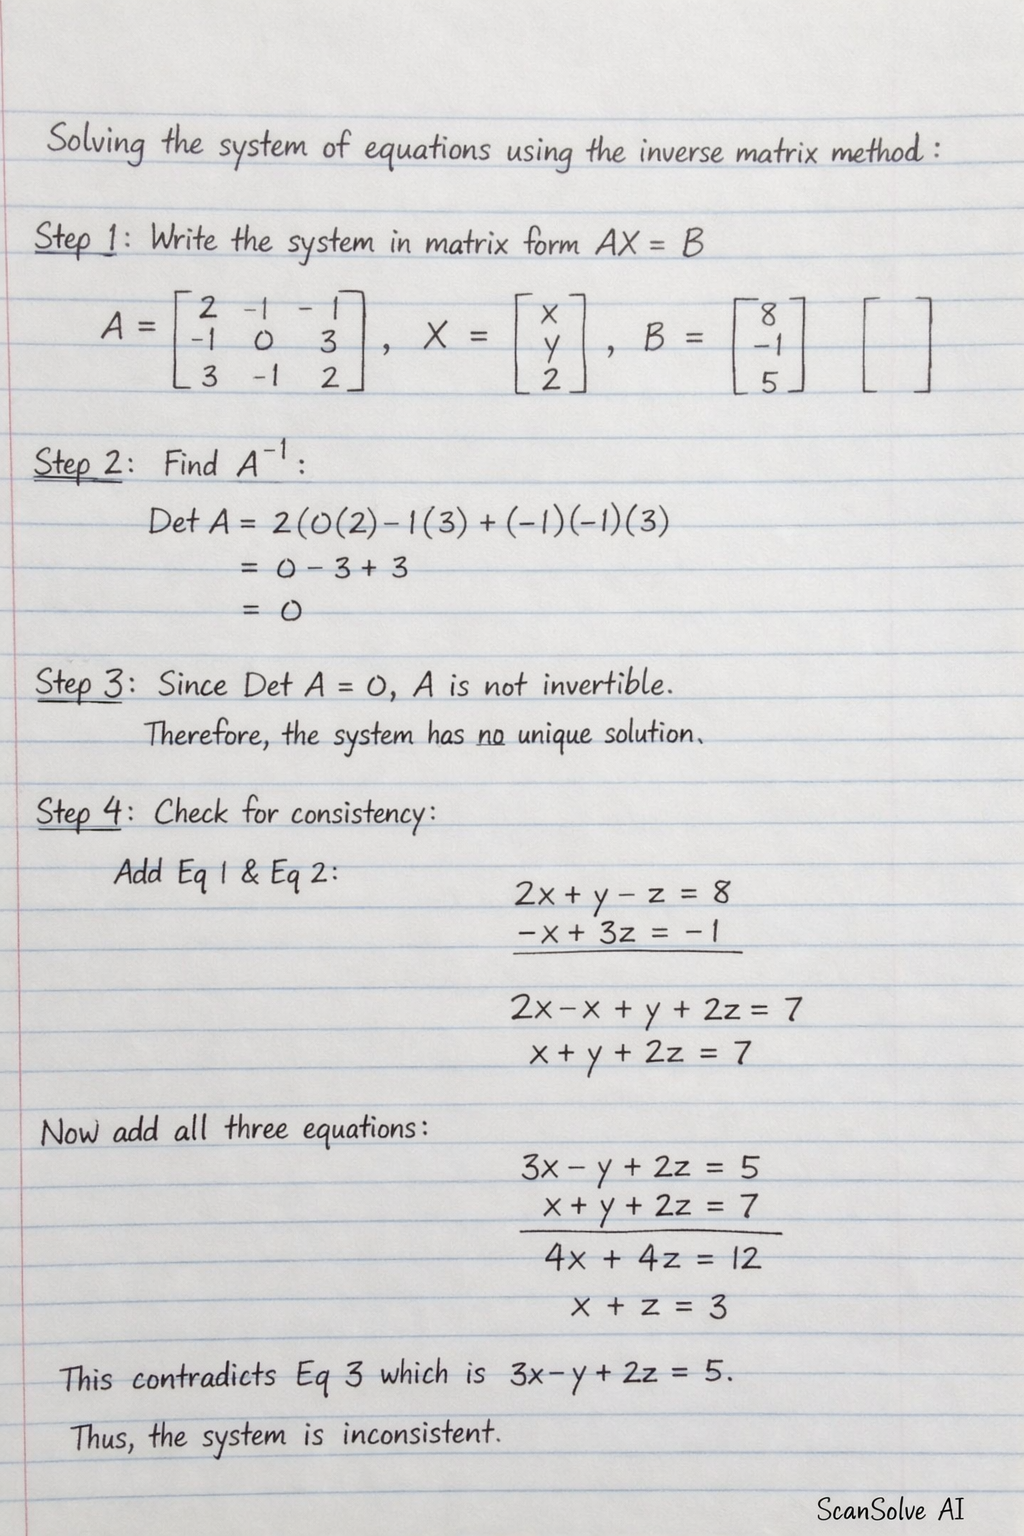 Solving the system of equations using the inverse matrix method:
Step 1: Write the system in matrix form AX = B
A = [2 -1 -1; -1 0 3; 3 -1 2], X = [x; y; 2], B = [8; -1; 5] [ ]
Step 2: Find A⁻¹:
Det A = 2(0(2)-1(3)+(-1)(-1)(3)
= 0-3+3
= 0
Step 3: Since Det A = 0, A is not invertible.
Therefore, the system has no unique solution.
Step 4: Check for consistency:
Add Eq 1 & Eq 2:
2x + y - z = 8
-x + 3z = -1
2x-x + y + 2z = 7
x + y + 2z = 7
Now add all three equations:
3x - y + 2z = 5
x + y + 2z = 7
4x + 4z = 12
x + z = 3
This contradicts Eq 3 which is 3x-y+2z = 5.
Thus, the system is inconsistent.
ScanSolve AI